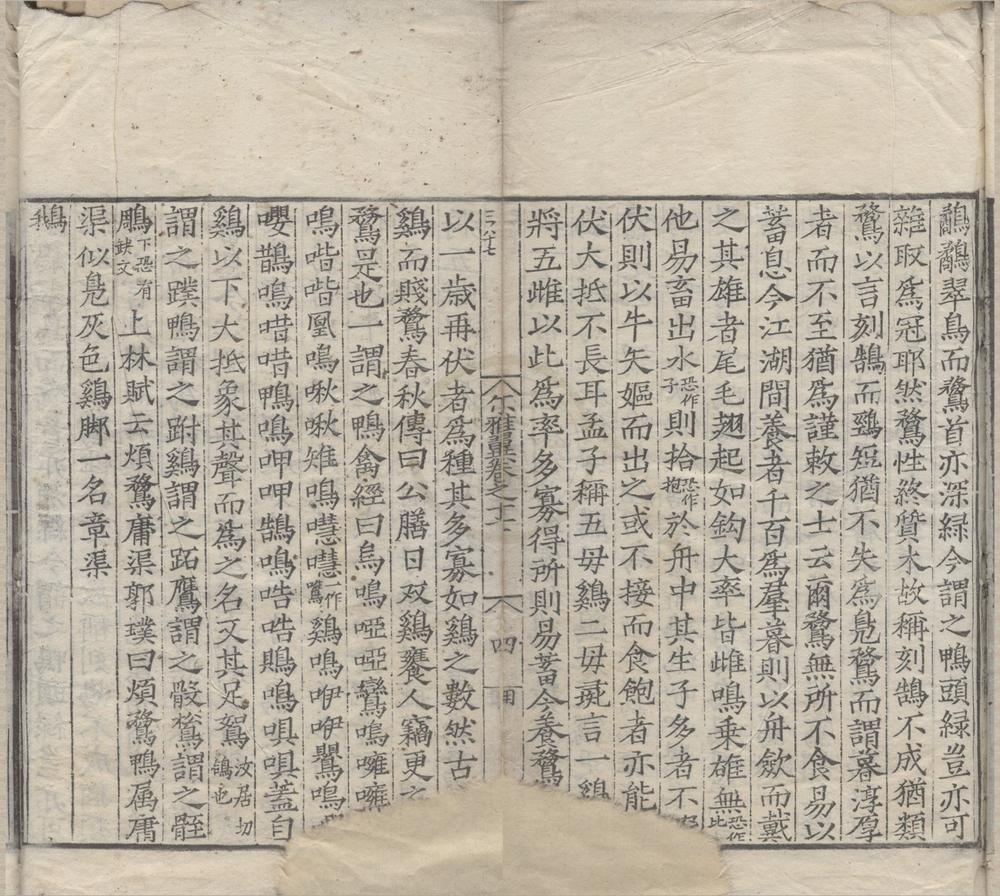 鷸鷸翠鳥而鶩首亦深緑今謂之鴨頭緑豈亦可
雜取爲冠耶然鶩性終質木故稱刻鵠不成猶類
鶩以言刻鵠而頸短猶不失爲鳬鶩而謂暮淳厚
者而不至猶爲謹敕之士云爾鶩無所不食易以
蓄息今江湖間養者千百爲羣暮則以舟歛而載
之其雄者尾毛翹起如鈎大率皆雌鳴乗雄無恐作此
他易畜出水恐作子則拾恐作抱於舟中其生子多者不
伏則以牛矢嫗而出之或不接而食飽者亦能
伏大抵不長耳孟子稱五毋鷄二毋彘言一鷄
將五雌以此爲率多寡得所則易蓄今養鶩
三八七
尓雅翼卷之十七 四
以一歳再伏者爲種其多寡如鷄之數然古
鷄而賤鶩春秋傳曰公膳日双鷄饔人竊更之
鶩是也一謂之鴨禽經曰烏鳴啞啞鸞鳴噰噰
鳴喈喈凰鳴啾啾雉鳴嘒嘒一作鷕鷄鳴咿咿鸎鳴
嚶鵲鳴唶唶鴨鳴呷呷鵠鳴哠哠鵙鳴嗅嗅蓋自
鷄以下大抵象其聲而爲之名又其足鴽汝居切鴾也
謂之蹼鴨謂之跗鷄謂之跖鷹謂之骹鶩謂之骹
鵰下恐有缺文上林賦云煩鶩庸渠郭璞曰煩鶩鴨属庸
渠似鳬灰色鷄脚一名章渠
鵝